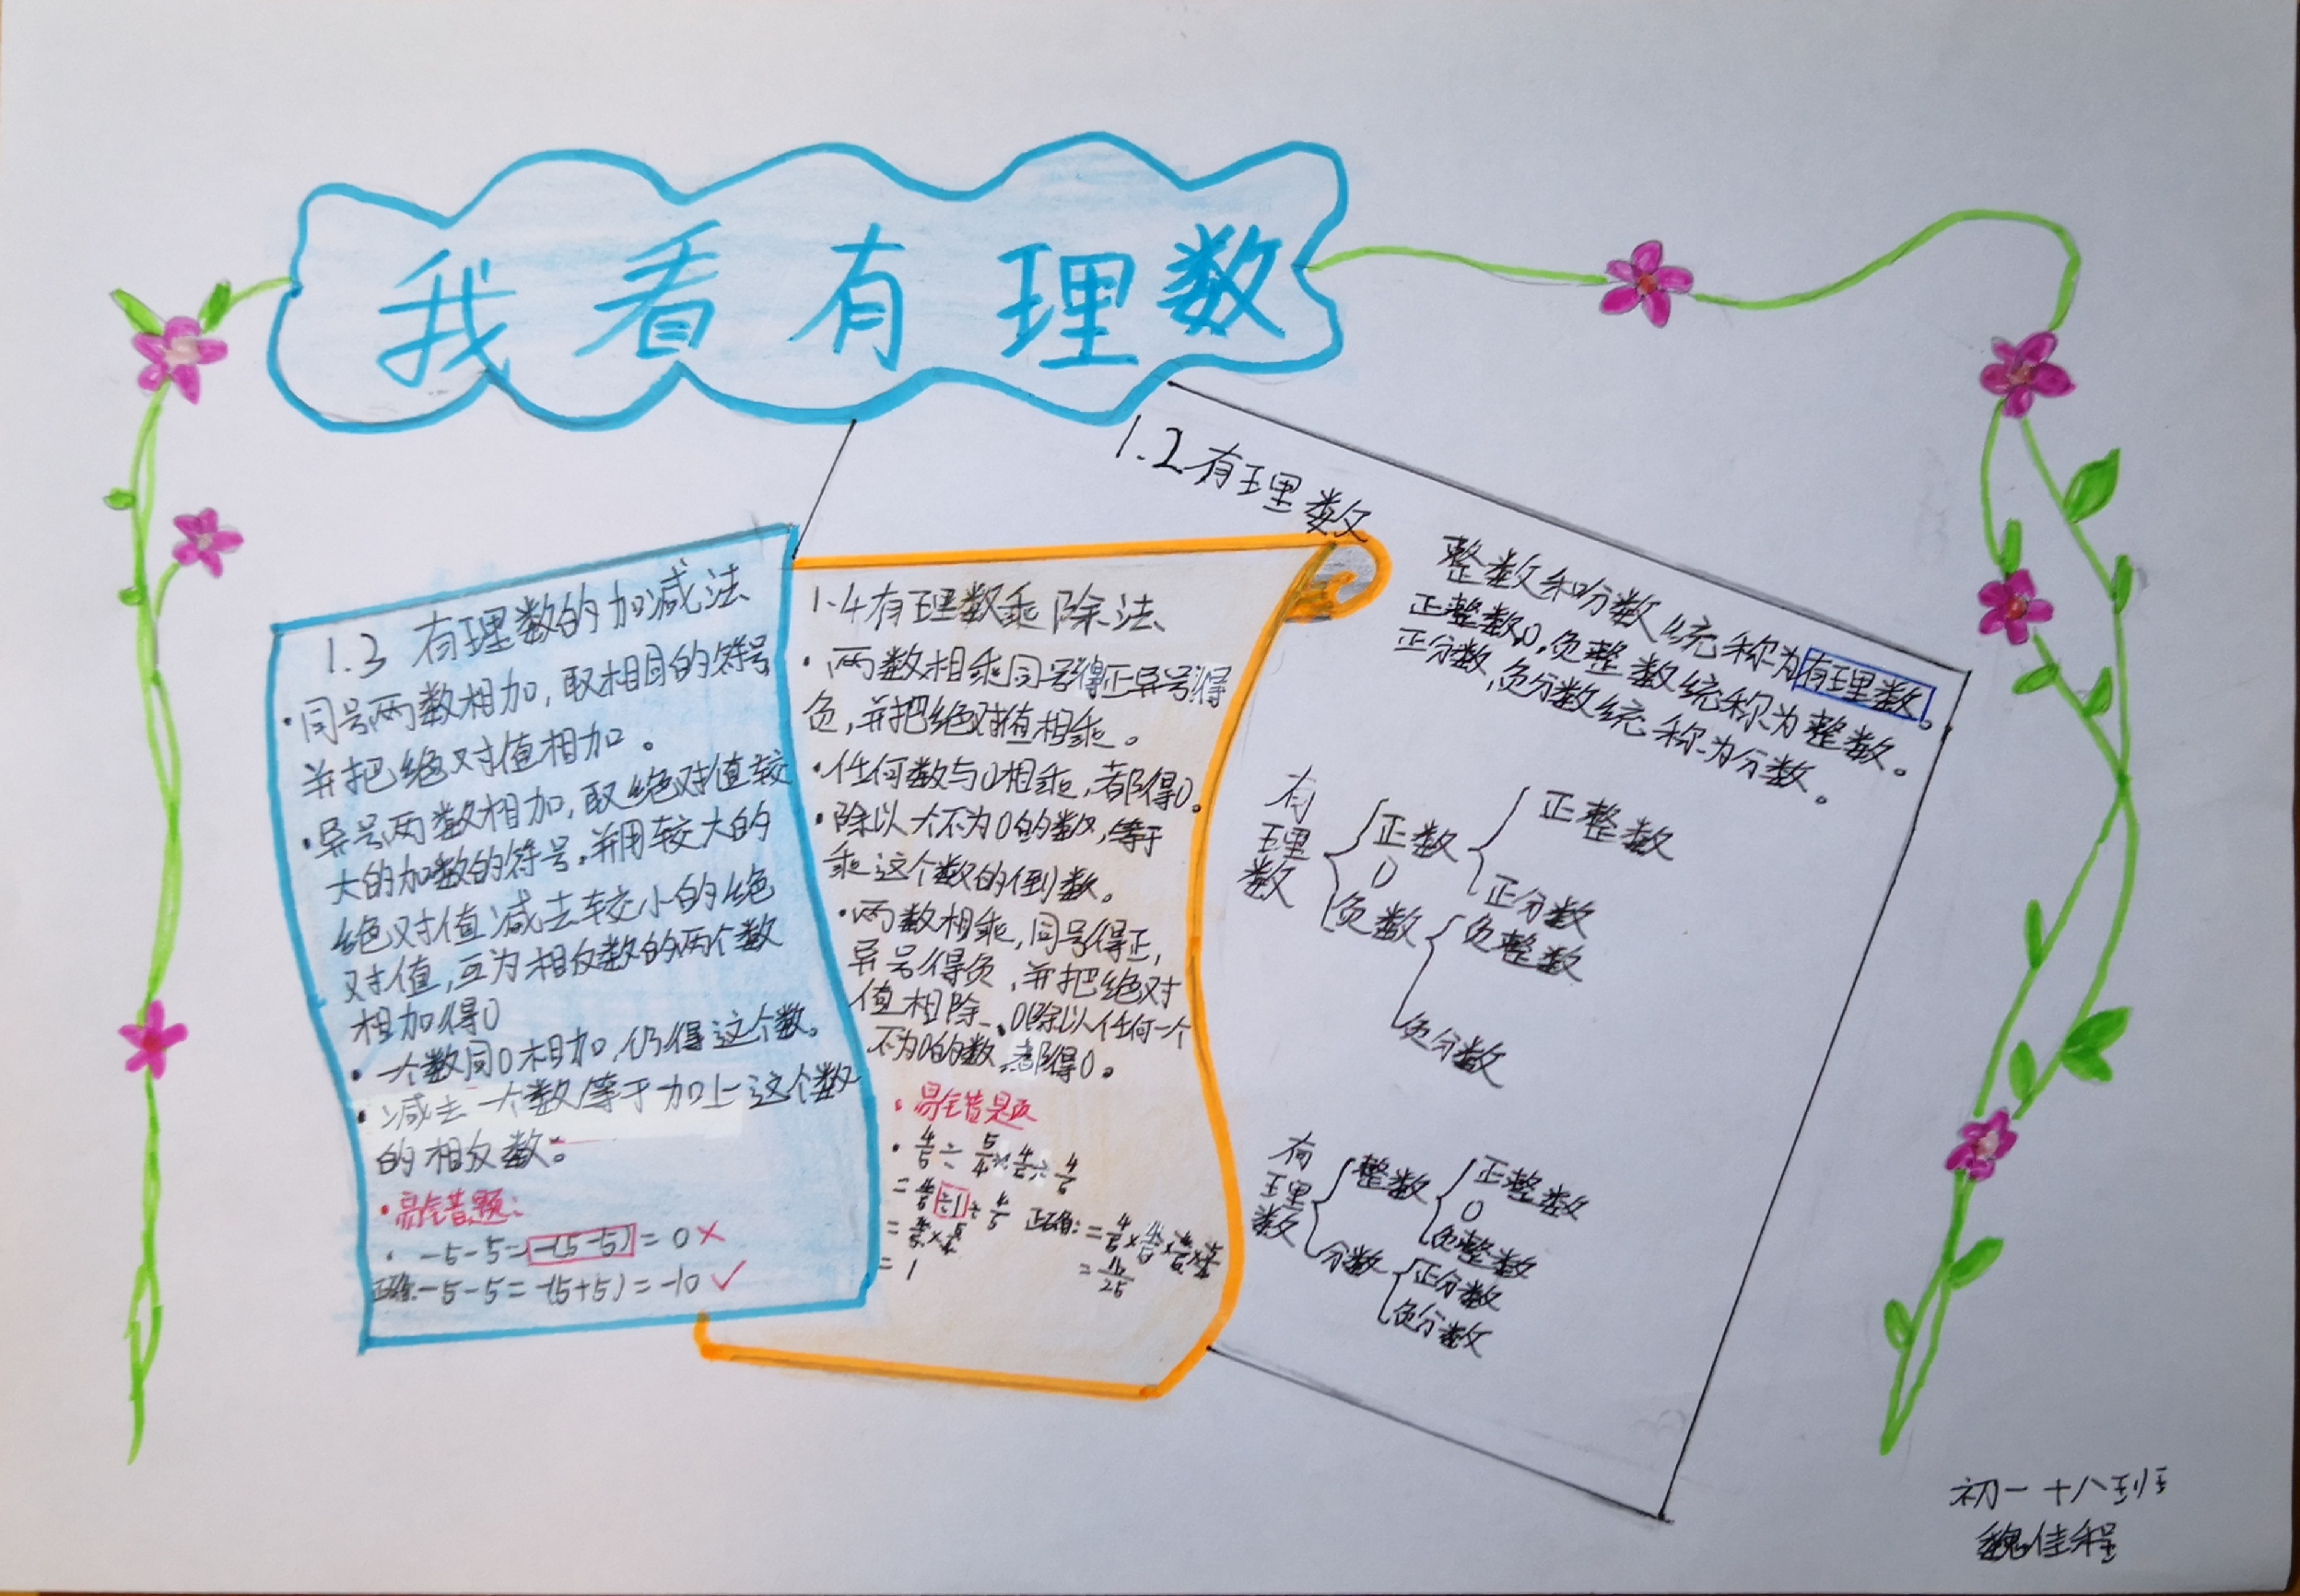 我看有理数
1.3 有理数的加减法
·同号两数相加,取相同的符号
并把绝对值相加。
·异号两数相加,取绝对值较
大的加数的符号,并用较大的
绝对值减去较小的绝
对值,互为相反数的两个数
相加得0
·一个数同0相加,仍得这个数。
·减去一个数等于加上这个数
的相反数。
·易错题:
·-5-5=-(5-5)=0×
正确:-5-5=-(5+5)=-10✓
1.4有理数乘除法
·两数相乘同号得正异号得
负,并把绝对值相乘。
·任何数与0相乘,都得0。
·除以一个不为0的数,等于
乘这个数的倒数。
·两数相乘,同号得正,
异号得负,并把绝对
值相除、0除以任何一个
不为0的数,都得0。
·易错题
=1
正确:
1.2有理数
整数和分数统称为有理数。
正整数,0,负整数统称为整数。
正分数、负分数统称为分数。
有理数
正数
正整数
正分数
0
负数
负整数
负分数
有理数
整数
正整数
0
负整数
分数
正分数
负分数
初一十八班
魏佳程